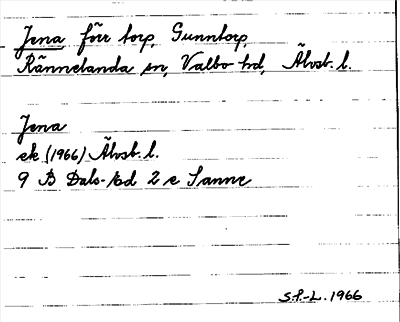 Jena, förr torp, Gunntorp,
Rännelanda sn, Valbo hd, Älvsb. l.
Jena
ek (1966) Älvsb. l.
9 B Dals-Ed 2 e Sanne
S.P.-L. 1966